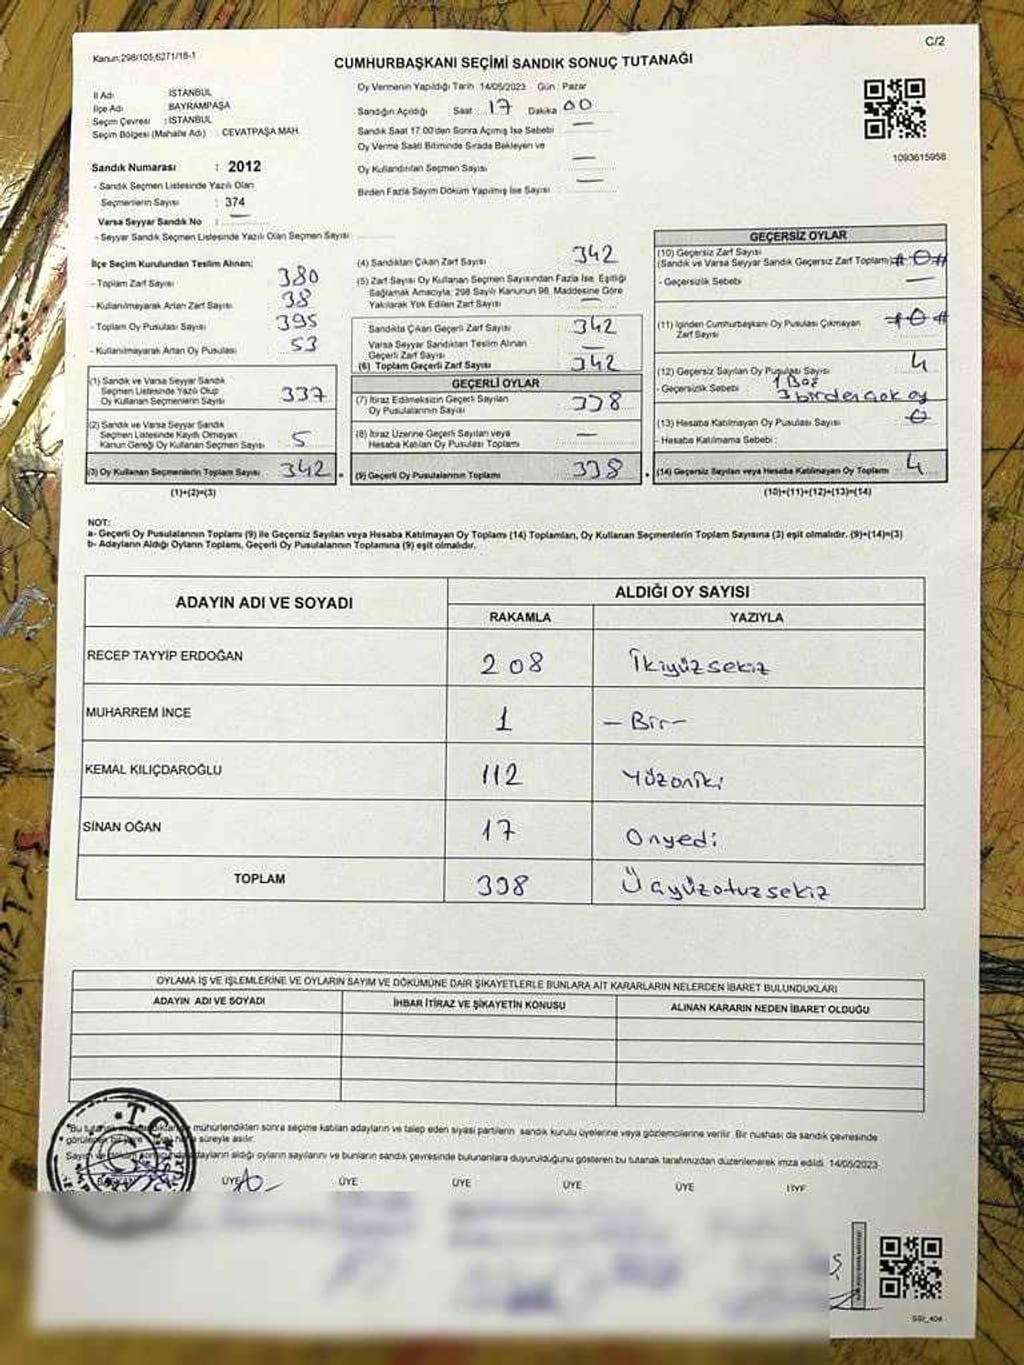 Kanun:298/105;6271/18-1
C/2
CUMHURBAŞKANI SEÇİMİ SANDIK SONUÇ TUTANAĞI
İl Adı : İSTANBUL
İlçe Adı : BAYRAMPAŞA
Seçim Çevresi : İSTANBUL
Seçim Bölgesi (Mahalle Adı) : CEVATPAŞA MAH.
Oy Vermenin Yapıldığı Tarih : 14/05/2023 Gün : Pazar
Sandığın Açıldığı Saat : 17 Dakika 00
Sandık Saat 17:00'den Sonra Açmış İse Sebebi —
Oy Verme Saati Bitiminde Sırada Bekleyen ve
Oy Kullandırılan Seçmen Sayısı —
Birden Fazla Sayım Döküm Yapılmış İse Sayısı —
1093615958
Sandık Numarası : 2012
- Sandık Seçmen Listesinde Yazılı Olan
Seçmenlerin Sayısı : 374
Varsa Seyyar Sandık No : —
- Seyyar Sandık Seçmen Listesinde Yazılı Olan Seçmen Sayısı:
İlçe Seçim Kurulundan Teslim Alınan;
- Toplam Zarf Sayısı : 380
- Kullanılmayarak Artan Zarf Sayısı : 38
- Toplam Oy Pusulası Sayısı : 395
- Kullanılmayarak Artan Oy Pusulası : 53
(1) Sandık ve Varsa Seyyar Sandık
Seçmen Listesinde Yazılı Olup
Oy Kullanan Seçmenlerin Sayısı 337
(2) Sandık ve Varsa Seyyar Sandık
Seçmen Listesinde Kaydı Olmayan
Kanun Gereği Oy Kullanan Seçmen Sayısı 5
(3) Oy Kullanan Seçmenlerin Toplam Sayısı 342 =
(1)+(2)=(3)
(4) Sandıktan Çıkan Zarf Sayısı 342
(5) Zarf Sayısı Oy Kullanan Seçmen Sayısından Fazla İse, Eşitliği
Sağlamak Amacıyla, 298 Sayılı Kanunun 98. Maddesine Göre
Yakılarak Yok Edilen Zarf Sayısı —
Sandıkta Çıkan Geçerli Zarf Sayısı 342
Varsa Seyyar Sandıktan Teslim Alınan
Geçerli Zarf Sayısı —
(6) Toplam Geçerli Zarf Sayısı 342
GEÇERLİ OYLAR
(7) İtiraz Edilmeksizin Geçerli Sayılan
Oy Pusulalarının Sayısı 338
(8) İtiraz Üzerine Geçerli Sayılan veya
Hesaba Katılan Oy Pusulası Toplamı —
(9) Geçerli Oy Pusulalarının Toplamı 338 +
GEÇERSİZ OYLAR
(10) Geçersiz Zarf Sayısı
(Sandık ve Varsa Seyyar Sandık Geçersiz Zarf Toplamı) #0#
- Geçersizlik Sebebi —
(11) İçinden Cumhurbaşkanı Oy Pusulası Çıkmayan
Zarf Sayısı #0#
(12) Geçersiz Sayılan Oy Pusulası Sayısı 4
- Geçersizlik Sebebi 1 Boş
3 birden çok oy
(13) Hesaba Katılmayan Oy Pusulası Sayısı 0
- Hesaba Katılmama Sebebi :
(14) Geçersiz Sayılan veya Hesaba Katılmayan Oy Toplamı 4
(10)+(11)+(12)+(13)=(14)
NOT:
a- Geçerli Oy Pusulalarının Toplamı (9) ile Geçersiz Sayılan veya Hesaba Katılmayan Oy Toplamı (14) Toplamları, Oy Kullanan Seçmenlerin Toplam Sayısına (3) eşit olmalıdır. (9)+(14)=(3)
b- Adayların Aldığı Oyların Toplamı, Geçerli Oy Pusulalarının Toplamına (9) eşit olmalıdır.
ADAYIN ADI VE SOYADI
ALDIĞI OY SAYISI
RAKAMLA YAZIYLA
RECEP TAYYİP ERDOĞAN 208 İkiyüzsekiz
MUHARREM İNCE 1 - Bir -
KEMAL KILIÇDAROĞLU 112 Yüzoniki
SİNAN OĞAN 17 Onyedi
TOPLAM 338 Üçyüzotuzsekiz
OYLAMA İŞ VE İŞLEMLERİNE VE OYLARIN SAYIM VE DÖKÜMÜNE DAİR ŞİKAYETLERLE BUNLARA AİT KARARLARIN NELERDEN İBARET BULUNDUKLARI
ADAYIN ADI VE SOYADI İHBAR İTİRAZ VE ŞİKAYETİN KONUSU ALINAN KARARIN NEDEN İBARET OLDUĞU
*Bu mühürlendikten sonra seçime katılan adayların ve talep eden siyasi partilerin sandık kurulu üyelerine veya gözlemcilerine verilir. Bir nüshası da sandık çevresinde
süreyle asılır.
adayların aldığı oyların sayılarını ve bunların sandık çevresinde bulunanlara duyurulduğunu gösteren bu tutanak tarafımızdan düzenlenerek imza edildi. 14/05/2023
BAŞKAN ÜYE ÜYE ÜYE ÜYE ÜYE ÜYE